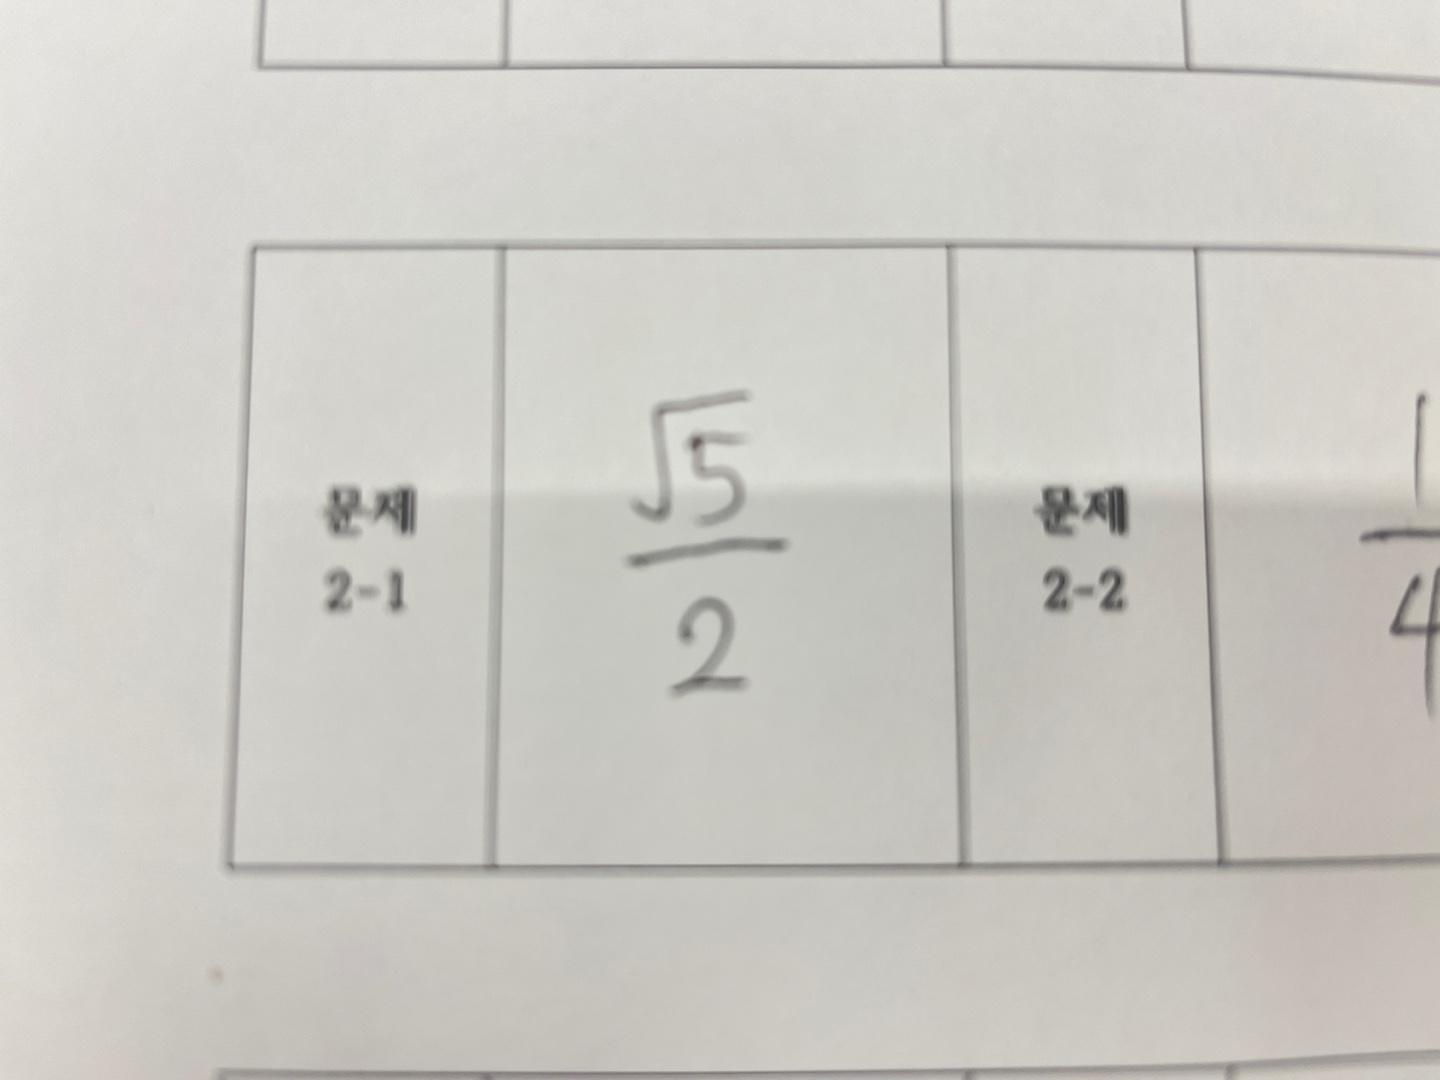 문제
2-1
√5
2
문제
2-2
1
4